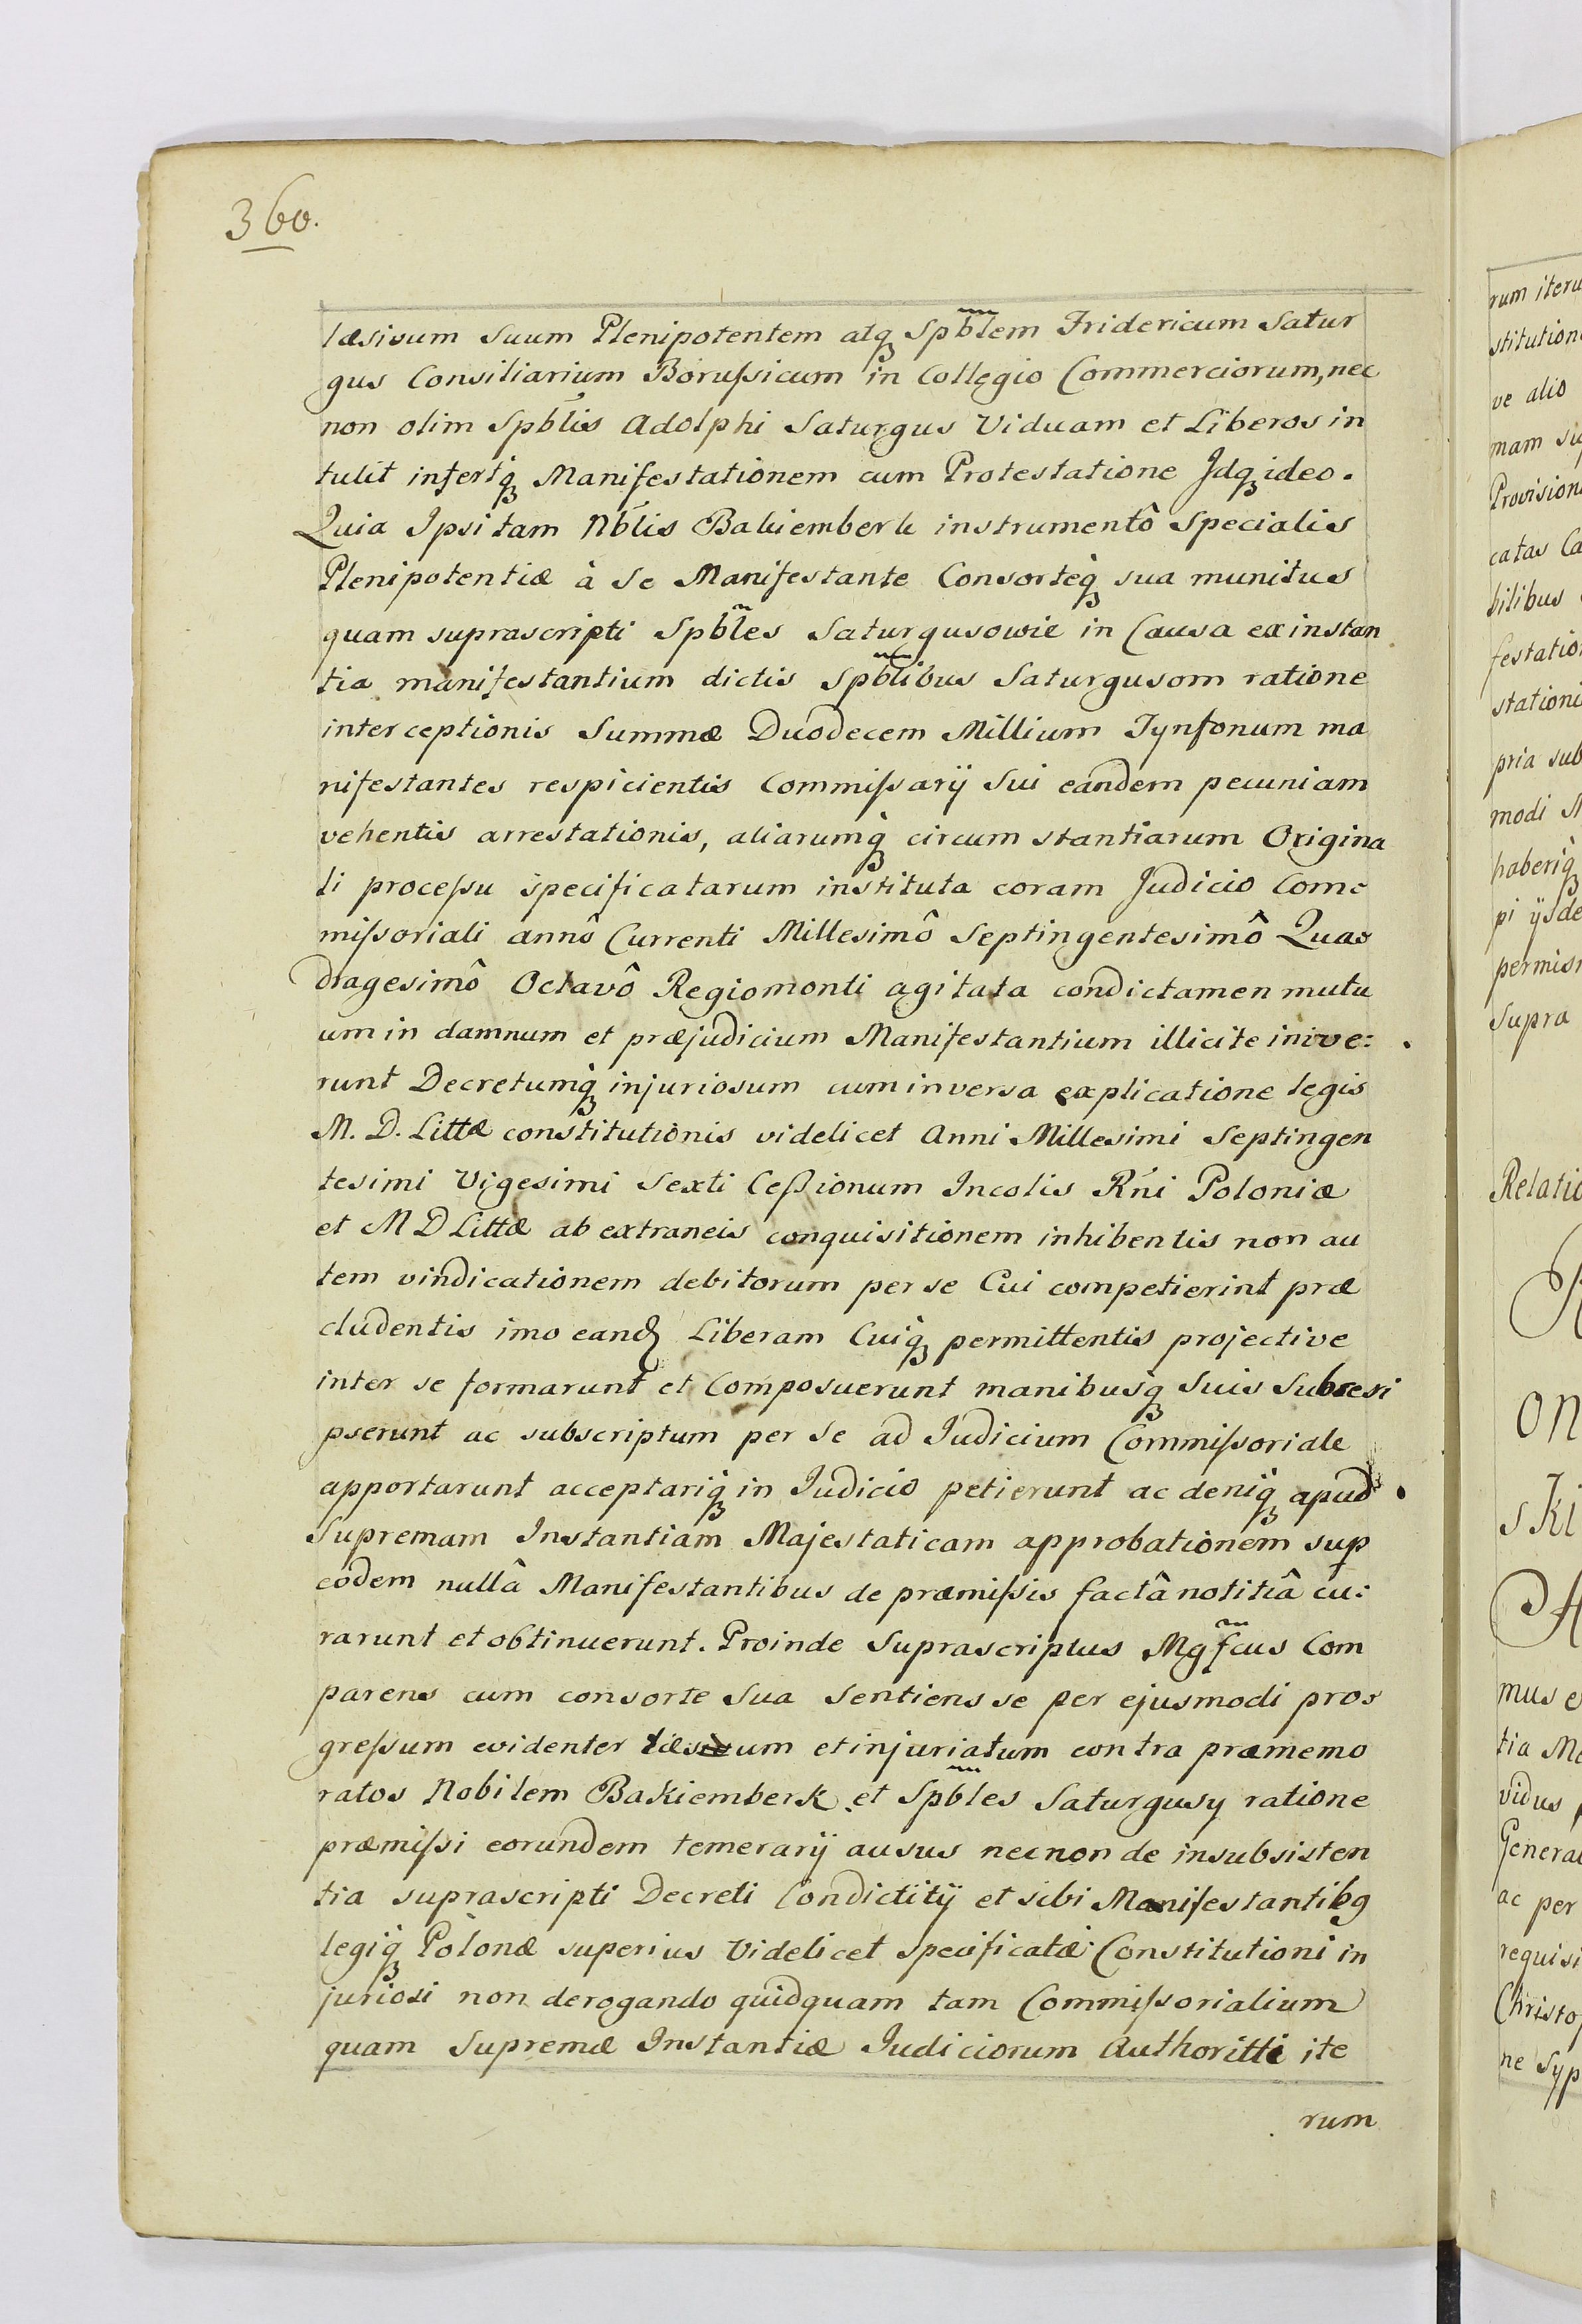 360.
læsivum suum Plenipotentem atq₃ Spb̃lem Fridericum Satur
gus Consiliarium Borufsicum in Collegio Commerciorum, nec
non olim Spb̃lis Adolphi Saturgus Viduam et Liberos in
tulit infertq₃ Manifestationem cum Protestatione Jdq₃ ideo.
Quia Ipsi tam Nb̃lis Bakiemberk instrumentô Specialis
Plenipotentiæ à se Manifestante Consorteq₃ sua munitus
quam suprascripti Spb̃les Saturgusowie in Causa ex instan
tia manifestantium dictis Spb̃libus Saturgusom ratione
interceptionis Summæ Duodecem Millium Tynfonum ma
nifestantes respicientis Commifsarij Sui eandem pecuniam
vehentis arrestationis, aliarumq₃ circumstantiarum Origina
li procefsu specificatarum instituta coram Judicio Com=
mifsoriali annô Currenti Millesimô Septingentesimô Qua=
dragesimô Octavô Regiomonti agitata condictamen mutu
um in damnum et præjudicium Manifestantium illicite inive:
runt Decretumq₃ injuriosum cum inversa explicatione legis
M. D. Littæ constitutionis videlicet Anni Millesimi Septingen
tesimi Vigesimi Sexti Cefsionum Incolis Rñi Poloniæ
et M D Littæ ab extraneis conquisitionem inhibentis non au
tem vindicationem debitorum per se Cui competierint præ
cludentis imo eand Liberam Cuiq₃ permittentis projective
inter se formarunt et Composuerunt manibusq₃ Suis Subscri
pserunt ac subscriptum per se ad Judicium Commifsoriale
apportarunt acceptariq₃ in Judicio petierunt ac deniq₃ apud
Supremam Instantiam Majestaticam approbationem sup
eodem nullâ Manifestantibus de præmifsis factâ notitiâ cu:
rarunt et obtinuerunt. Proinde Suprascriptus Mgf̃cus Com
parens cum consorte Sua Sentiens se per ejusmodi pro=
grefsum evidenter læsum et injuriatum contra præmemo
ratos Nobilem Bakiemberk et Spb̃les Saturgusy ratione
præmifsi eorundem temerarij ausus necnon de insubsisten
tia suprascripti Decreti Condictitij et sibi Manifestantibꝰ
legiq₃ Polonæ superius Videlicet specificatæ Constitutioni in
juriosi non derogando quidquam tam Commifsorialium
quam Supremæ Instantiæ Judiciorum Authoritti ite
rum
rum iteru
stitution
ve alio
mam su
Provision
catas Ca
bilibus
festatio
stationi
pria sub
modi
haberiq₃
pi ijsde
permis
Supra
Relatio
on
ski
mus e
tia
vidus
Genera
ac per
requisi
Christo
ne Syp